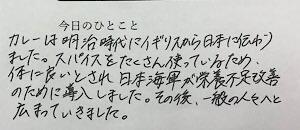 今日のひとこと
カレーは明治時代にイギリスから日本に伝わり
ました。スパイスをたくさん使っているため、
体に良いとされ日本海軍が栄養不足改善
のために導入しました。その後、一般の人々へと
広まっていきました。